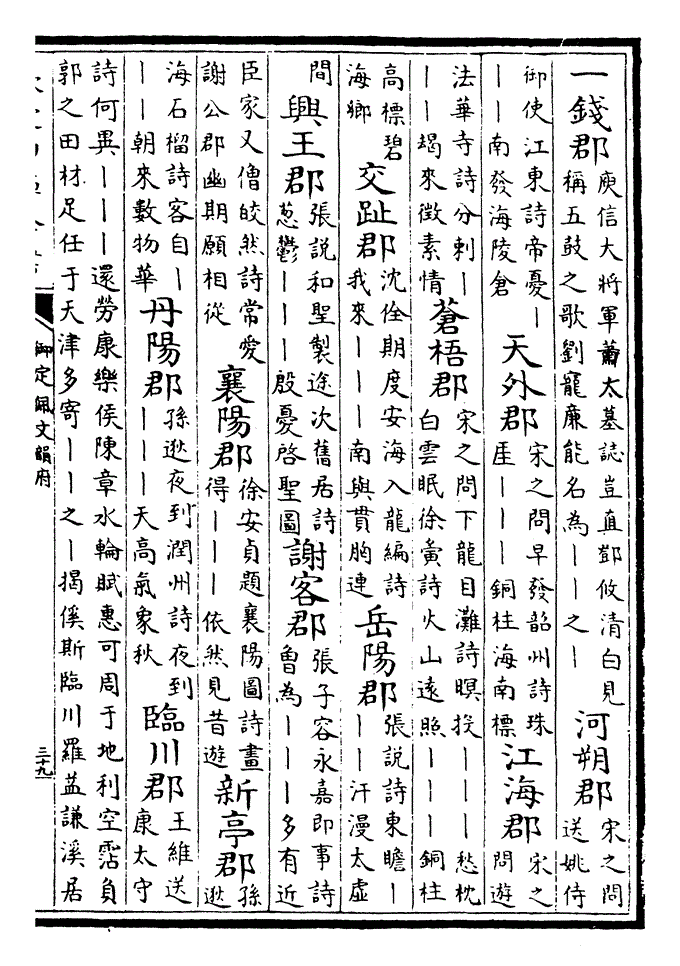 一錢郡
庾信大將軍蕭太墓誌豈直鄧攸清白見
稱五鼓之歌劉寵廉能名為丨丨之丨
河朔郡
宋之問
送姚侍
御使江東詩帝憂丨
丨丨南發海陵倉
天外郡
宋之問早發韶州詩珠
厓丨丨丨銅柱海南標
江海郡
宋之
問遊
法華寺詩分刺丨
丨丨朅來徵素情
蒼梧郡
宋之問下龍目灘詩暝投丨丨丨愁枕
白雲眠徐黃詩火山遠照丨丨丨銅柱
高標碧
海鄉
交趾郡
沈佺期度安海入龍編詩
我來丨丨丨南與貫胸連
岳陽郡
張說詩東瞻丨
丨丨汗漫太虛
間
興王郡
張說和聖製途次舊居詩
葱鬱丨丨丨殷憂啓聖圖
謝客郡
張子容永嘉即事詩
曾為丨丨丨多有近
臣家又僧皎然詩常愛
謝公郡幽期願相從
襄陽郡
徐安貞題襄陽圖詩畫
得丨丨丨依然見昔遊
新亭郡
孫
逖
海石榴詩客自丨
丨丨朝來數物華
丹陽郡
孫逖夜到潤州詩夜到
丨丨丨天高氣象秋
臨川郡
王維送
康太守
詩何異丨丨丨還勞康樂侯陳章水輪賦惠可周于地利空霑負
郭之田材足任于天津多寄丨丨之丨揭傒斯臨川羅益謙溪居
御定佩文韻府
三十九